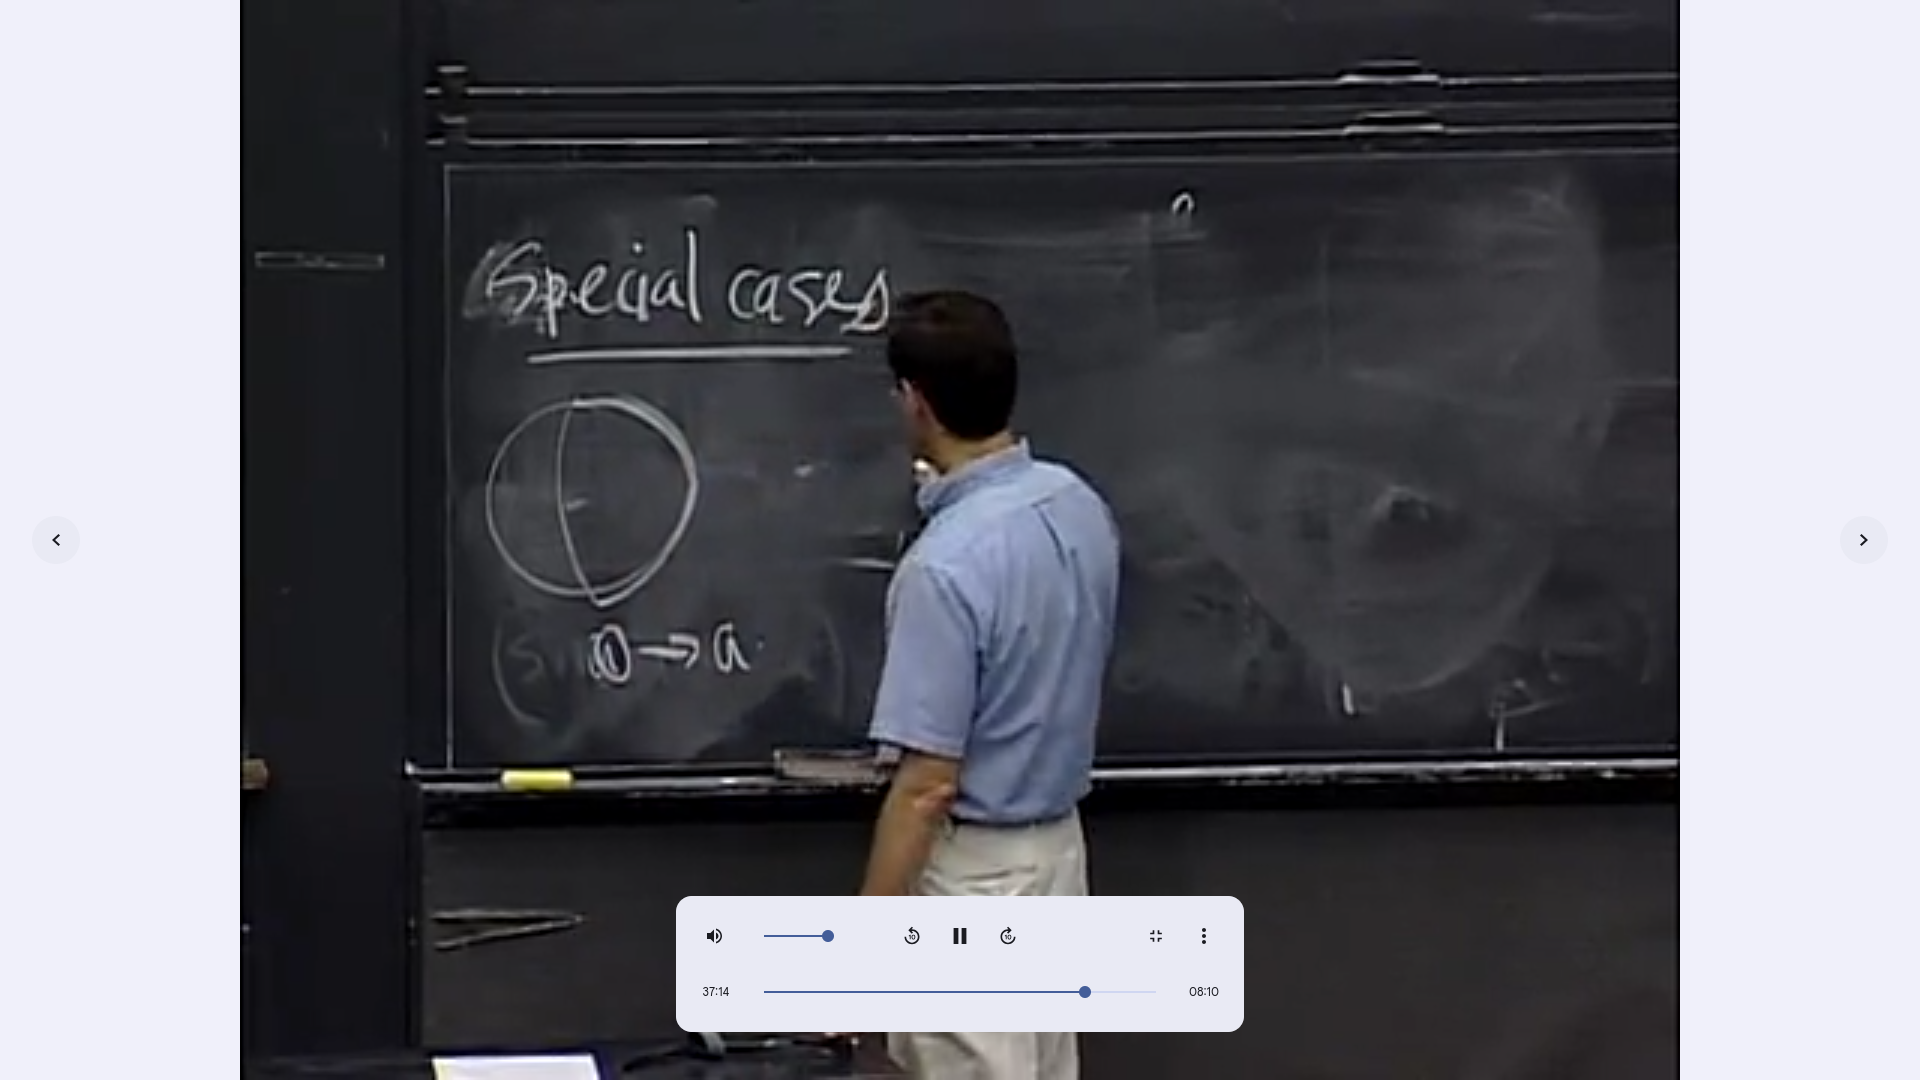 Special cases
0 → a
37:14
08:10